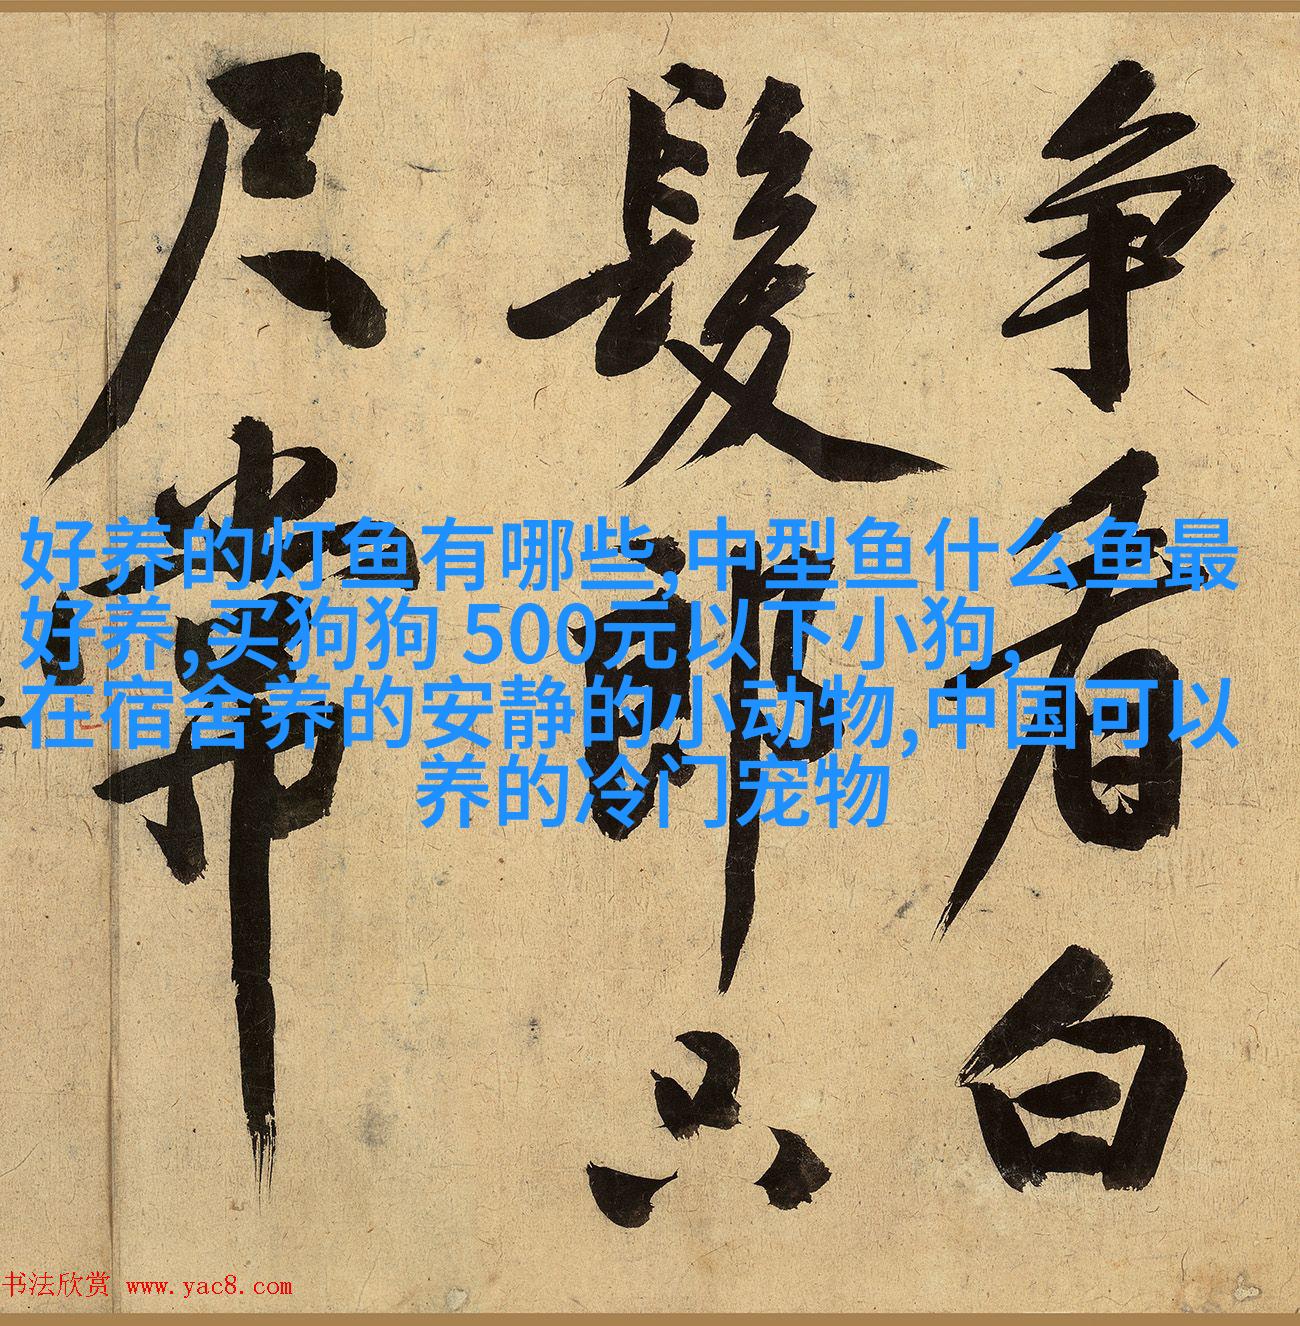 争看白
髮郎只
尺常
好养的灯鱼有哪些,中型鱼什么鱼最
好养,买狗狗 500元以下小狗,
在宿舍养的安静的小动物,中国可以
养的冷门宠物
书法欣赏 www.yac8.com